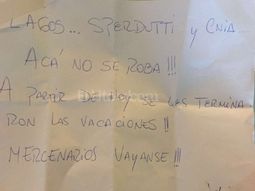 LAGOS... SPERDUTTI y CNIA..
ACÁ NO SE ROBA!!!
A PARTIR DE HOY SE LES TERMINA
RON LAS VACACIONES!!
MERCENARIOS VAYANSE!!!